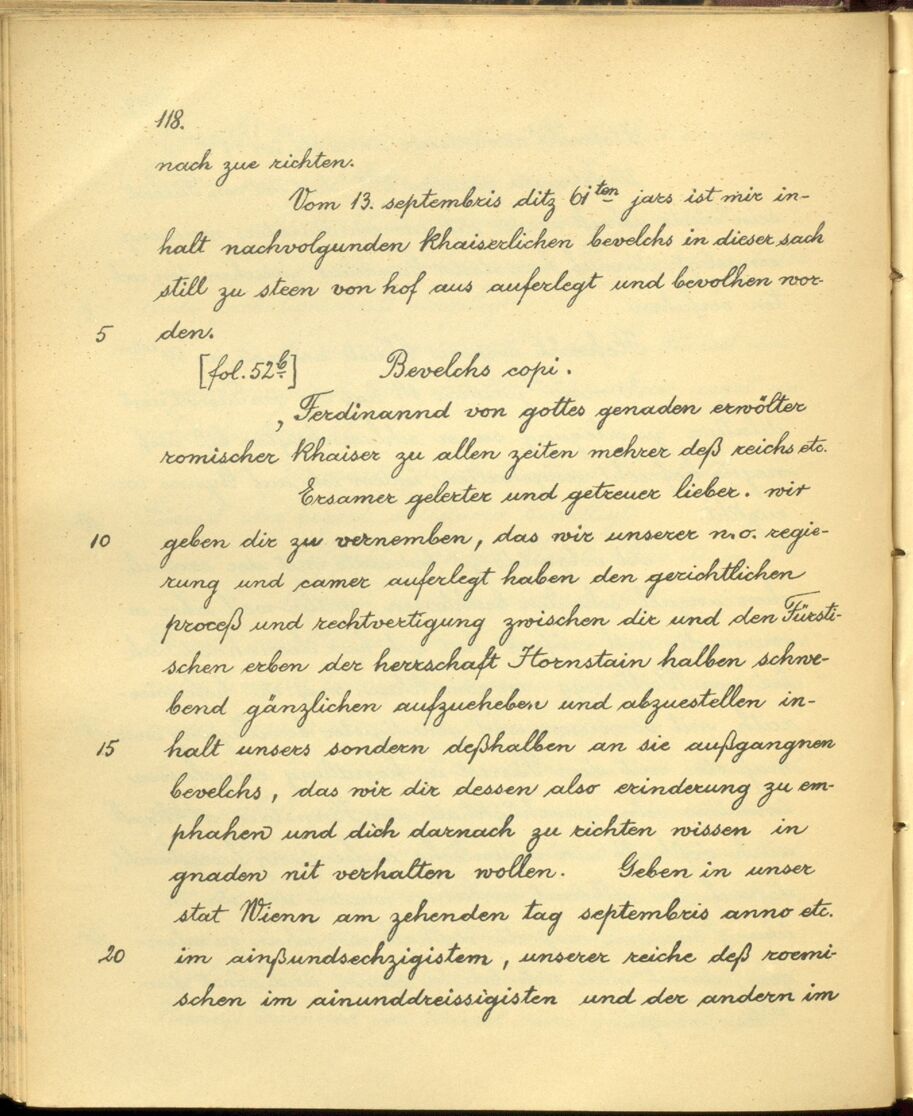 118.
nach zue richten.
Vom 13. septembris ditz 61ten jars ist mir in-
halt nachvolgunden khaiserlichen bevelchs in dieser sach
still zu steen von hof aus auferlegt und bevolhen wor-
5 den.
[fol. 52b.] Bevelchs copi.
„Ferdinannd von gottes genaden erwölter
romischer khaiser zu allen zeiten mehrer deß reichs etc.
Ersamer gelerter und getreuer lieber. wir
10 geben dir zu vernemben, das wir unserer n.o. regie-
rung und camer auferlegt haben den gerichtlichen
proceß und rechtvertigung zwischen dir und den Fürsti-
schen erben der herrschaft Hornstain halben schwe-
bend gänzlichen aufzueheben und abzuestellen in-
15 halt unsers sondern deßhalben an sie außgangnen
bevelchs, das wir dir dessen also erinderung zu em-
phahen und dich darnach zu richten wissen in
gnaden nit verhalten wollen. Geben in unser
stat Wienn am zehenden tag septembris anno etc.
20 im ainßundsechzigistem, unserer reiche deß roemi-
schen im ainunddreissigisten und der andern im